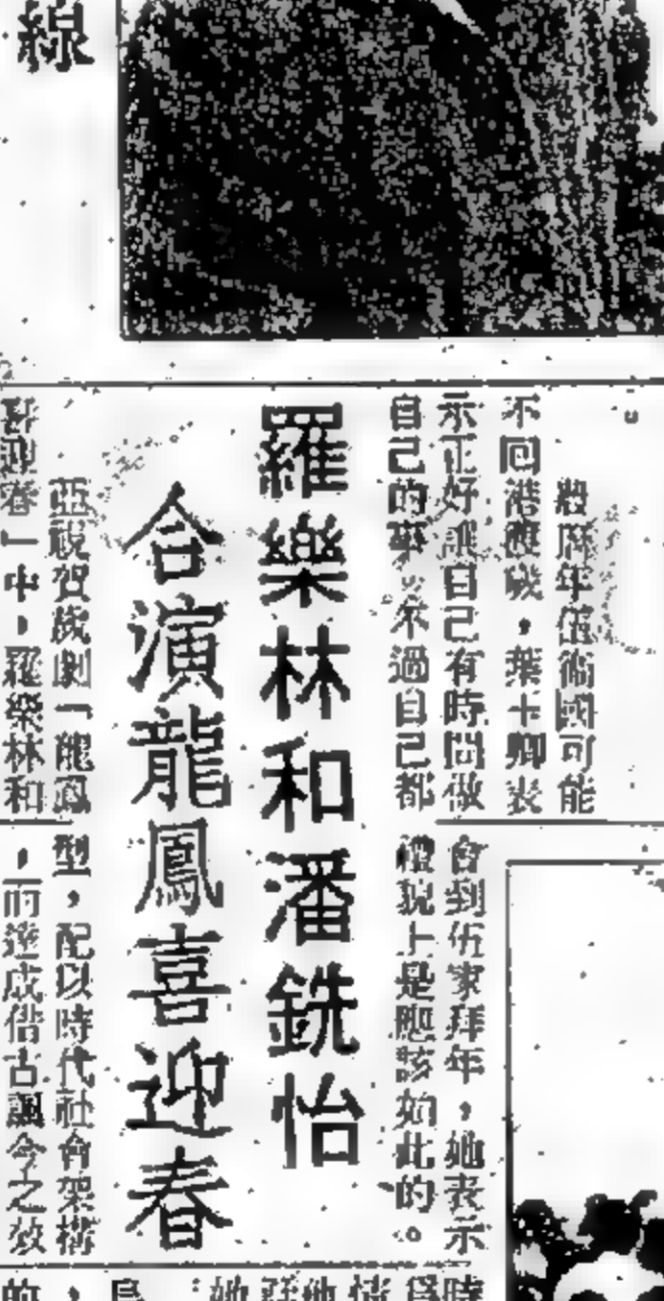 線
農曆年伍衛國可能
不回港應戰，葉十卿表
示正好讓自己有時間做
自己的事，不過自己都
會到伍家拜年，她表示
禮貌上是應該如此的。
羅樂林和潘銑怡
合演龍鳳喜迎春
亞視賀歲劇「龍鳳
喜迎春」中，羅樂林和
型，配以時代社會架構
，而達成借古諷今之效